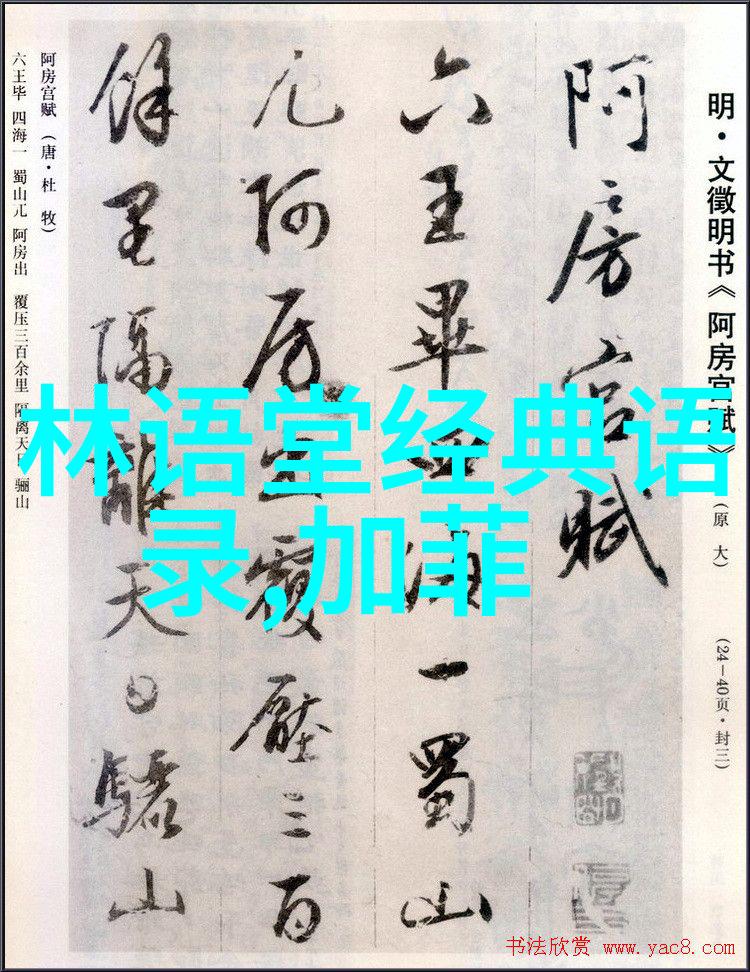 明·文徵明书《阿房宫赋》(原大) (24—40页·封三)
阿房宫赋
六王畢四海一蜀山
兀阿房出覆壓三百
餘里隔離天日驪山
阿房宫赋(唐·杜牧)
六王毕 四海一 蜀山兀 阿房出 覆压三百余里 隔离天日 骊山
林语堂经典语
录,加菲
书法欣赏 www.yac8.com